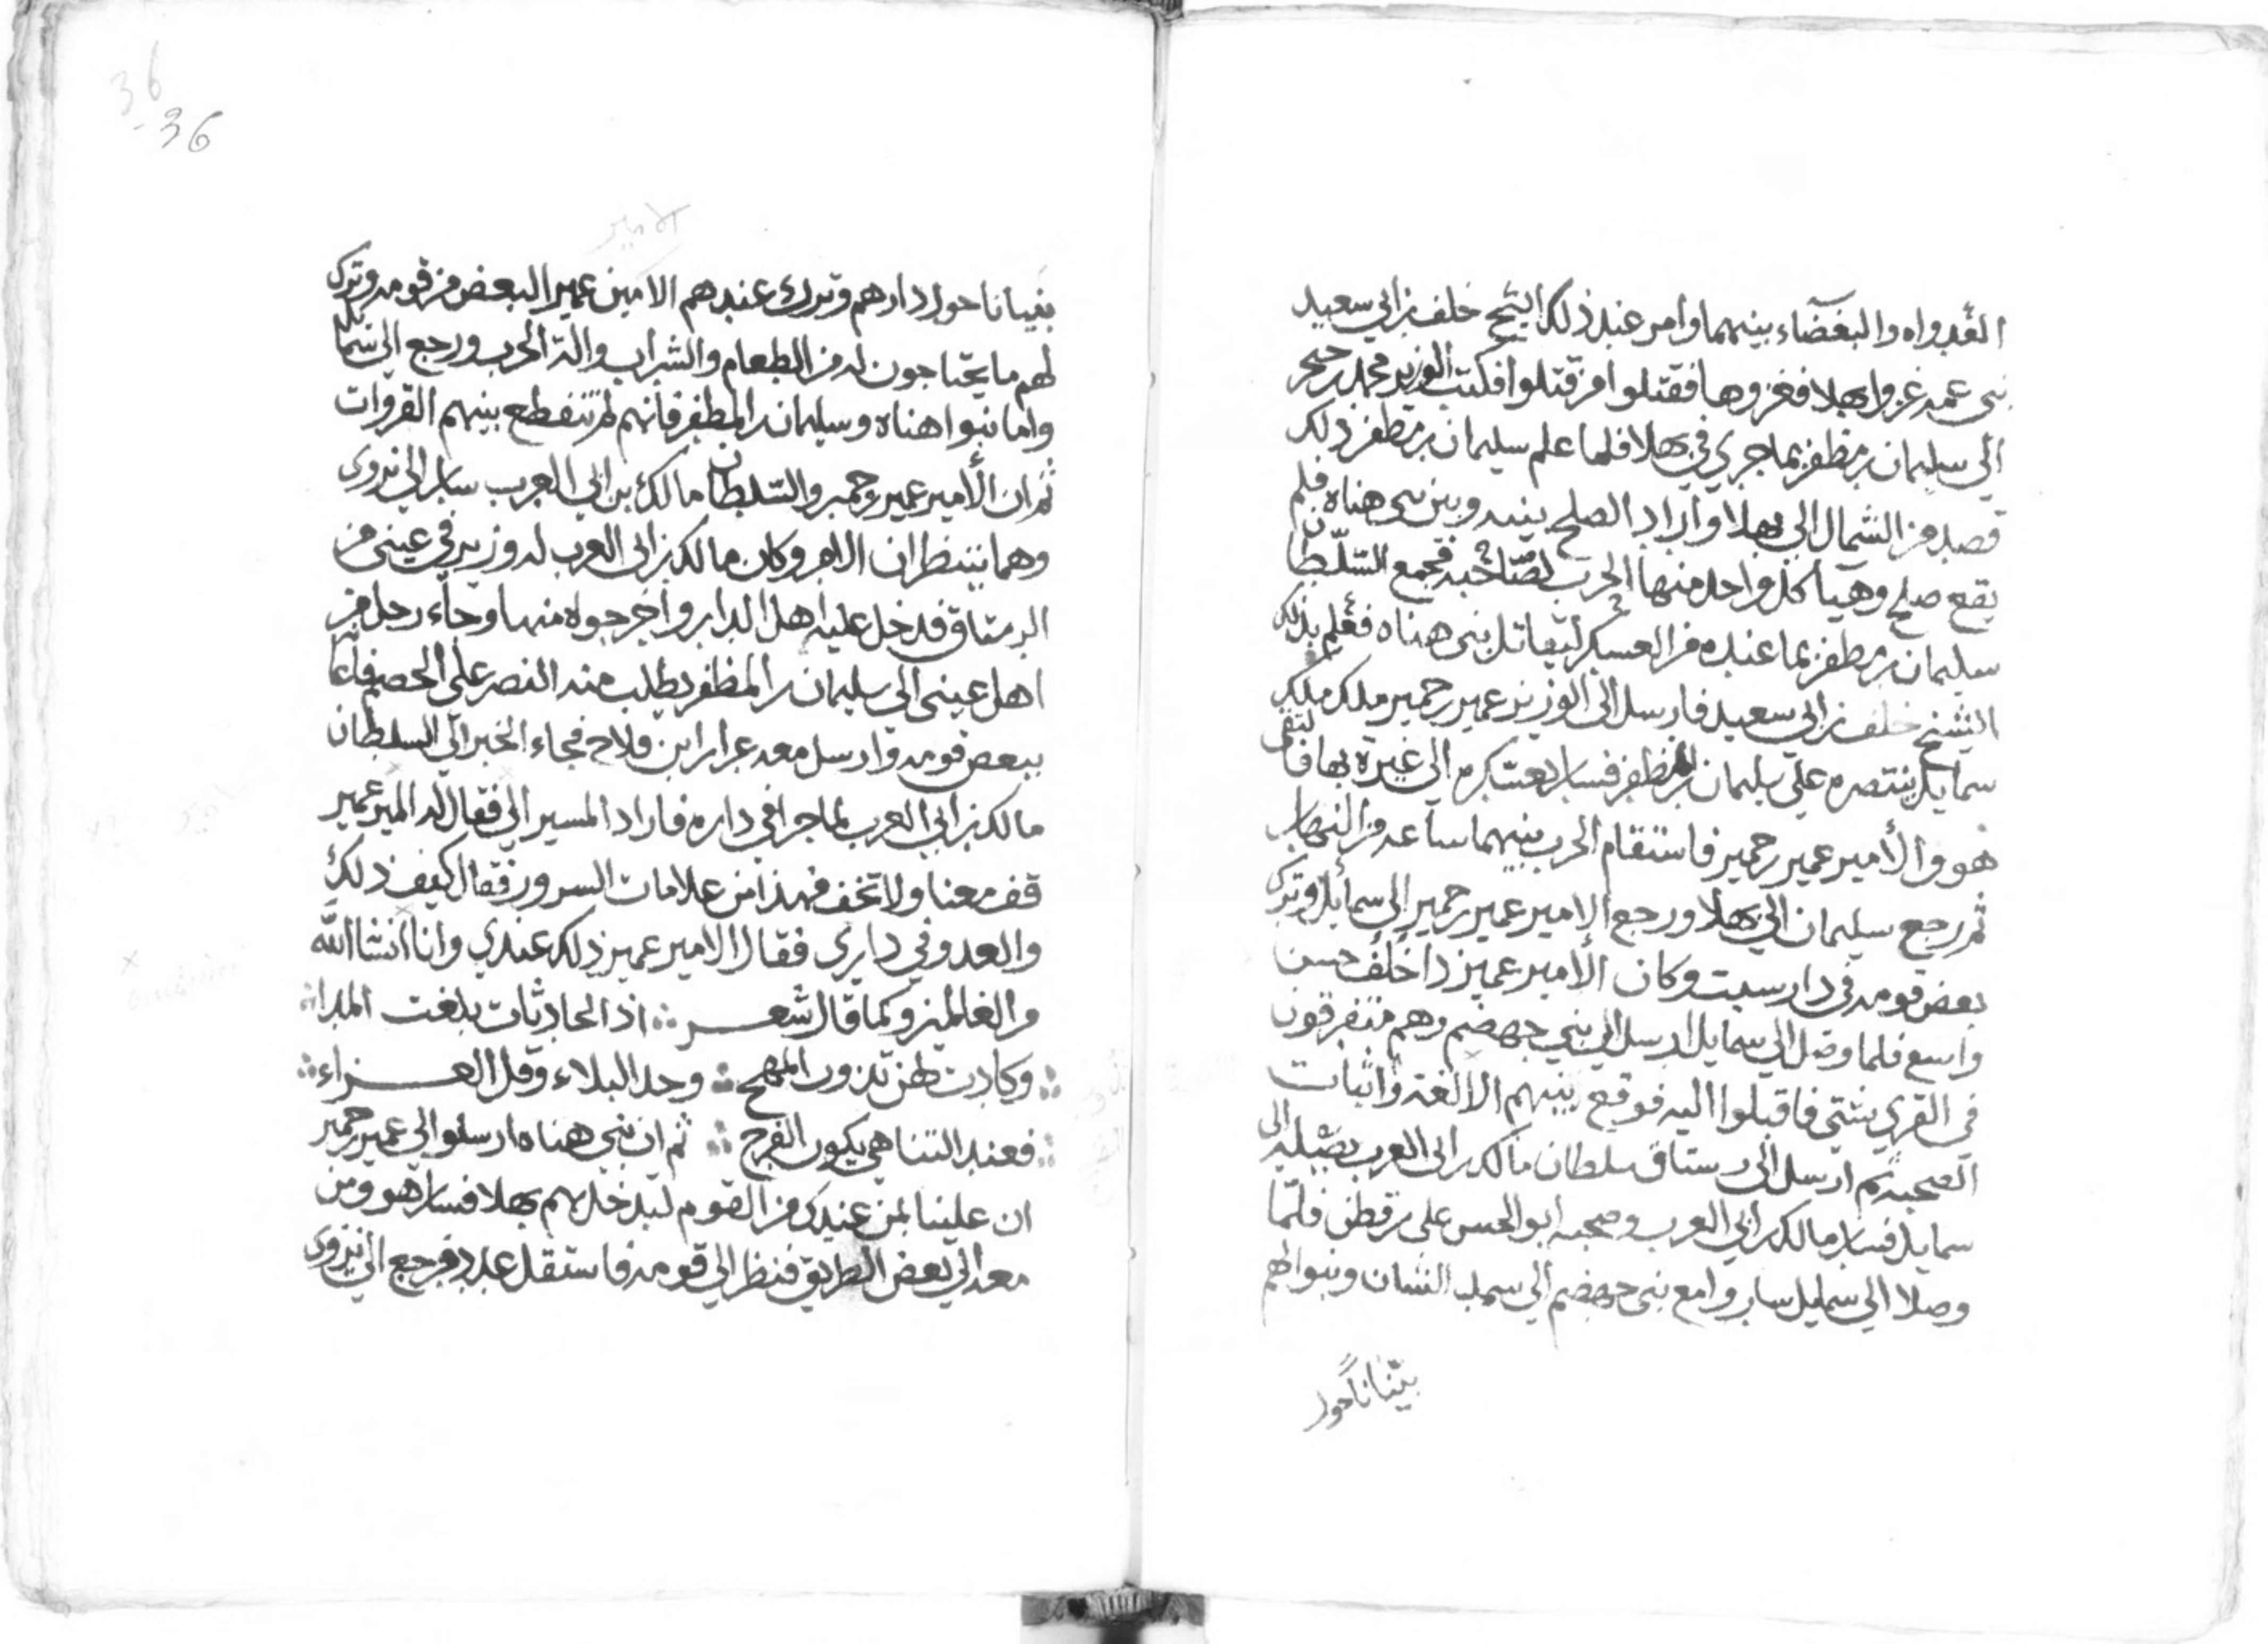 العدواه والبغضاء بينهما وامر عند ذلك الشيخ خلف بن ابي سعيد
بني عمه غزوا بهلا فغزوها فقتلوا من قتلوا فكتب الوزير محمد بن حجر
الي سليمان بن مظفر بما جري في بهلا فلما علم سليمان بن مظفر ذلك
قصد من الشمال الي بهلا واراد الصلح بينه وبين بني هناه فلم
يقع صلح وهيأ كل واحد منهما الحرب لصاحبه فجمع السلطان
سليمان بن مظفر بما عنده من العسكر ليقاتل بني هناه فعلم بذلك
الشيخ خلف بن ابي سعيد فارسل الي الوزير عمير بن حمير ملك ملك
سمايل ينتصره علي سليمان بن مظفر فسار بعساكره الي غيرة بها فالتقي
هو والأمير عمير بن حمير فاستقام الحرب بينهما ساعه من النهار
ثم رجع سليمان الي بهلا ورجع الامير عمير بن حمير الي سمائل وترك
بعض قومه في دار سيت وكان الأمير عمير ذا خلف حسن
واسع فلما وصل الي سمايل ارسل الي بني جهضم وهم متفرقون
في القري شتي فاقبلوا اليه فوقع بينهم الالفة واثبات
الصحبه ثم ارسل الي رستاق سلطان مالك بن ابي العرب يصله الي
سمايل فسار مالك بن ابي العرب وصحبه ابو الحسن علي بن قطن فلما
وصلا الي سمايل ساروا مع بني جهضم الي سمد الشان وبنوا لهم
بنيانا حول
36
36
الامير
بنيانا حول دارهم وترك عندهم الامير عمير البعض من قومه وترك
لهم ما يحتاجون له من الطعام والشراب والة الحرب ورجع الي سمايل
واما نبوا هناه وسليمان بن المظفر فانهم لم تنقطع بينهم الغزوات
ثم ان الأمير عمير بن حمير والسلطان مالك بن ابي العرب سار الي نزوي
وهما ينتظران الامر وكان مالك بن ابي العرب له وزير في عيني من
الرستاق فدخل عليه اهل الدار واخرجوه منها وجاء رجل من
اهل عيني الي سليمان بن المظفر يطلب منه النصر علي الخصم فاعانه
ببعض قومه وارسل معه عرار ابن فلاح فجاء الخبر الي السلطان
مالك بن ابي العرب لما جرا في داره فاراد المسير الي فقال له المير عمير
قف معنا ولا تخف فهذا من علامات السرور فقال كيف ذلك
والعدو في داري فقال الامير عمير ذلك عندي وانا انشا الله
من الغالمين وكما قال شعر ∴ اذ الحادثات بلغت المدا ∴
∴ وكادت لهن تذوب المهج ∴ وحد البلاء وقل العزاء ∴
∴ فعند التناهي يكون الفرج ∴ ثم ان بني هناه ارسلوا الي عمير بن حمير
ان علينا بمن عندك من القوم لندخل بهم بهلا فسار هو ومن
معه الي بعض الطريق فنظر الي قومه فاستقل عدد فرجع الي نزوي